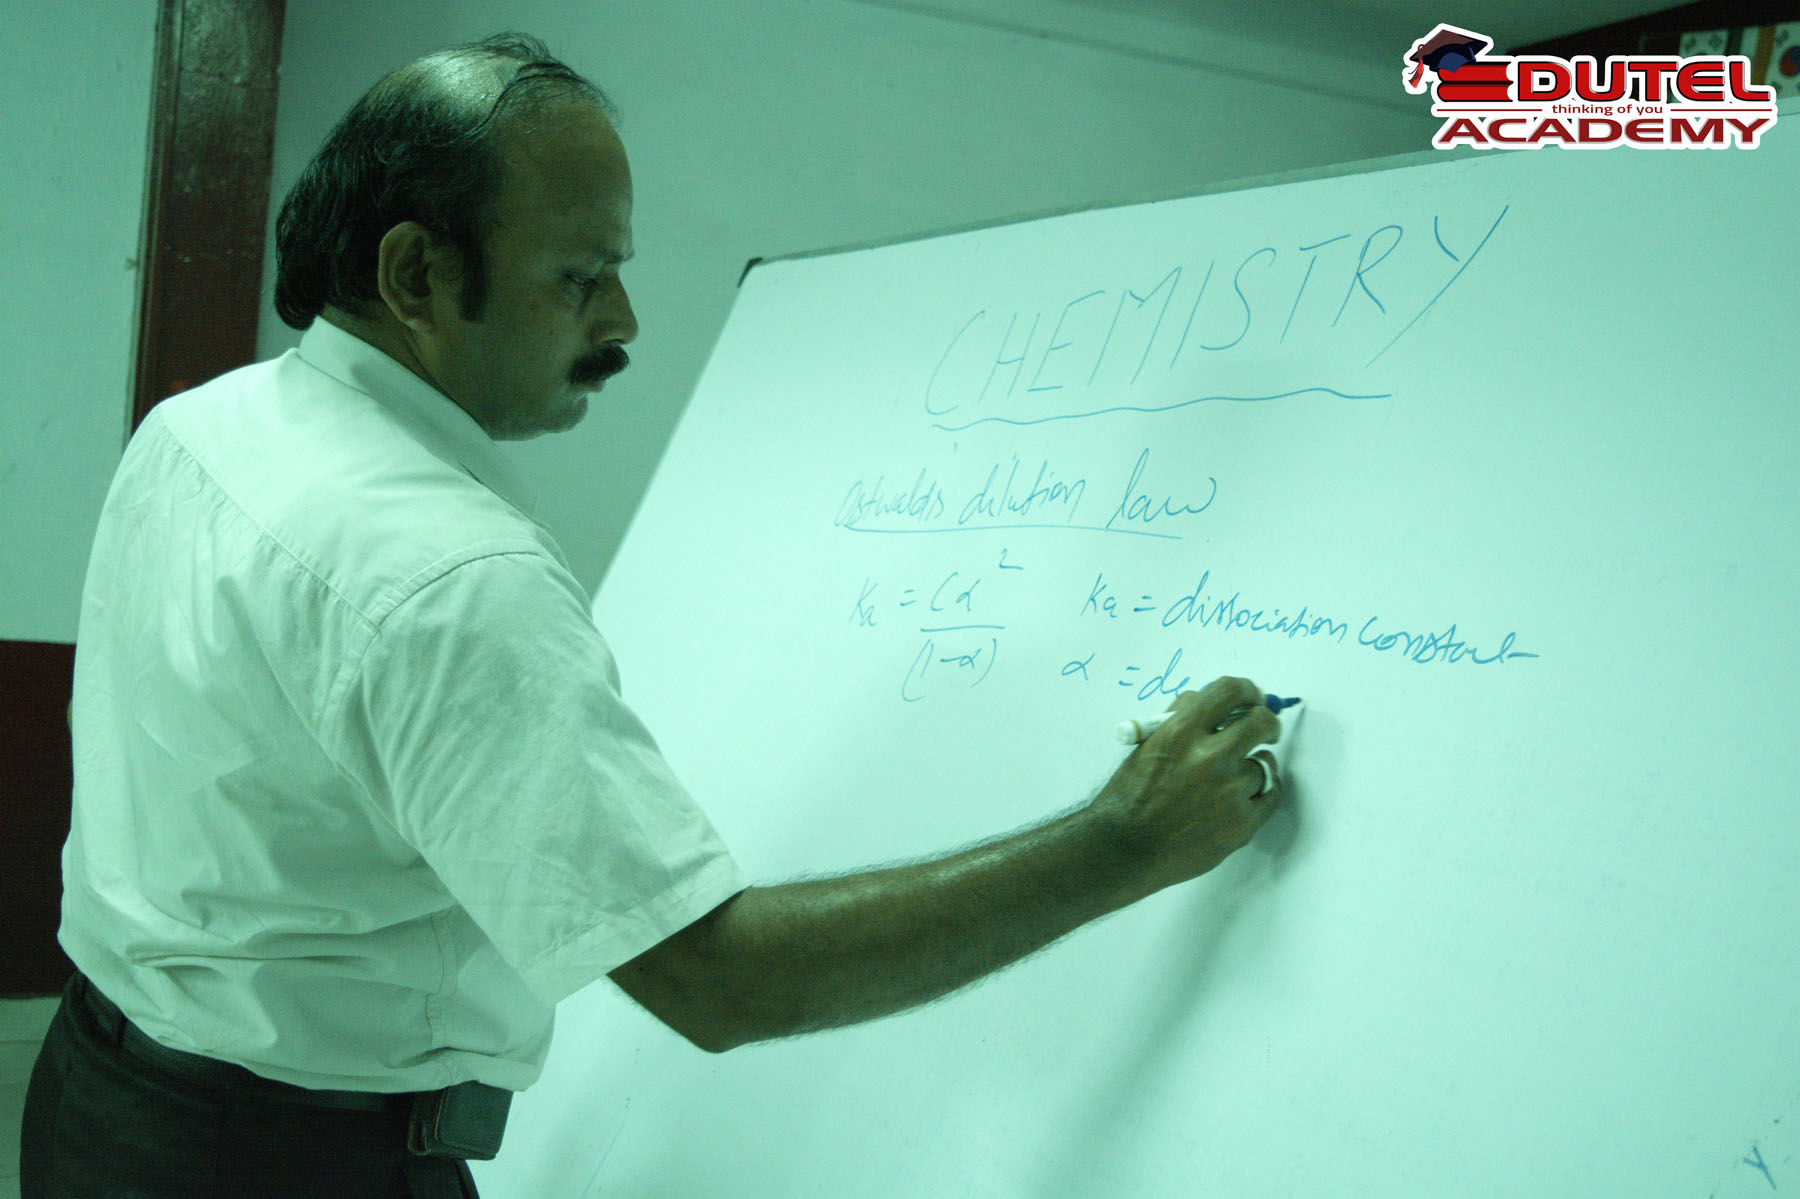 EDUTEL
thinking of you
ACADEMY
CHEMISTRY
Ostwald's dilution law
Ka = Cα²/(1-α)
Ka = dissociation constant
α = de